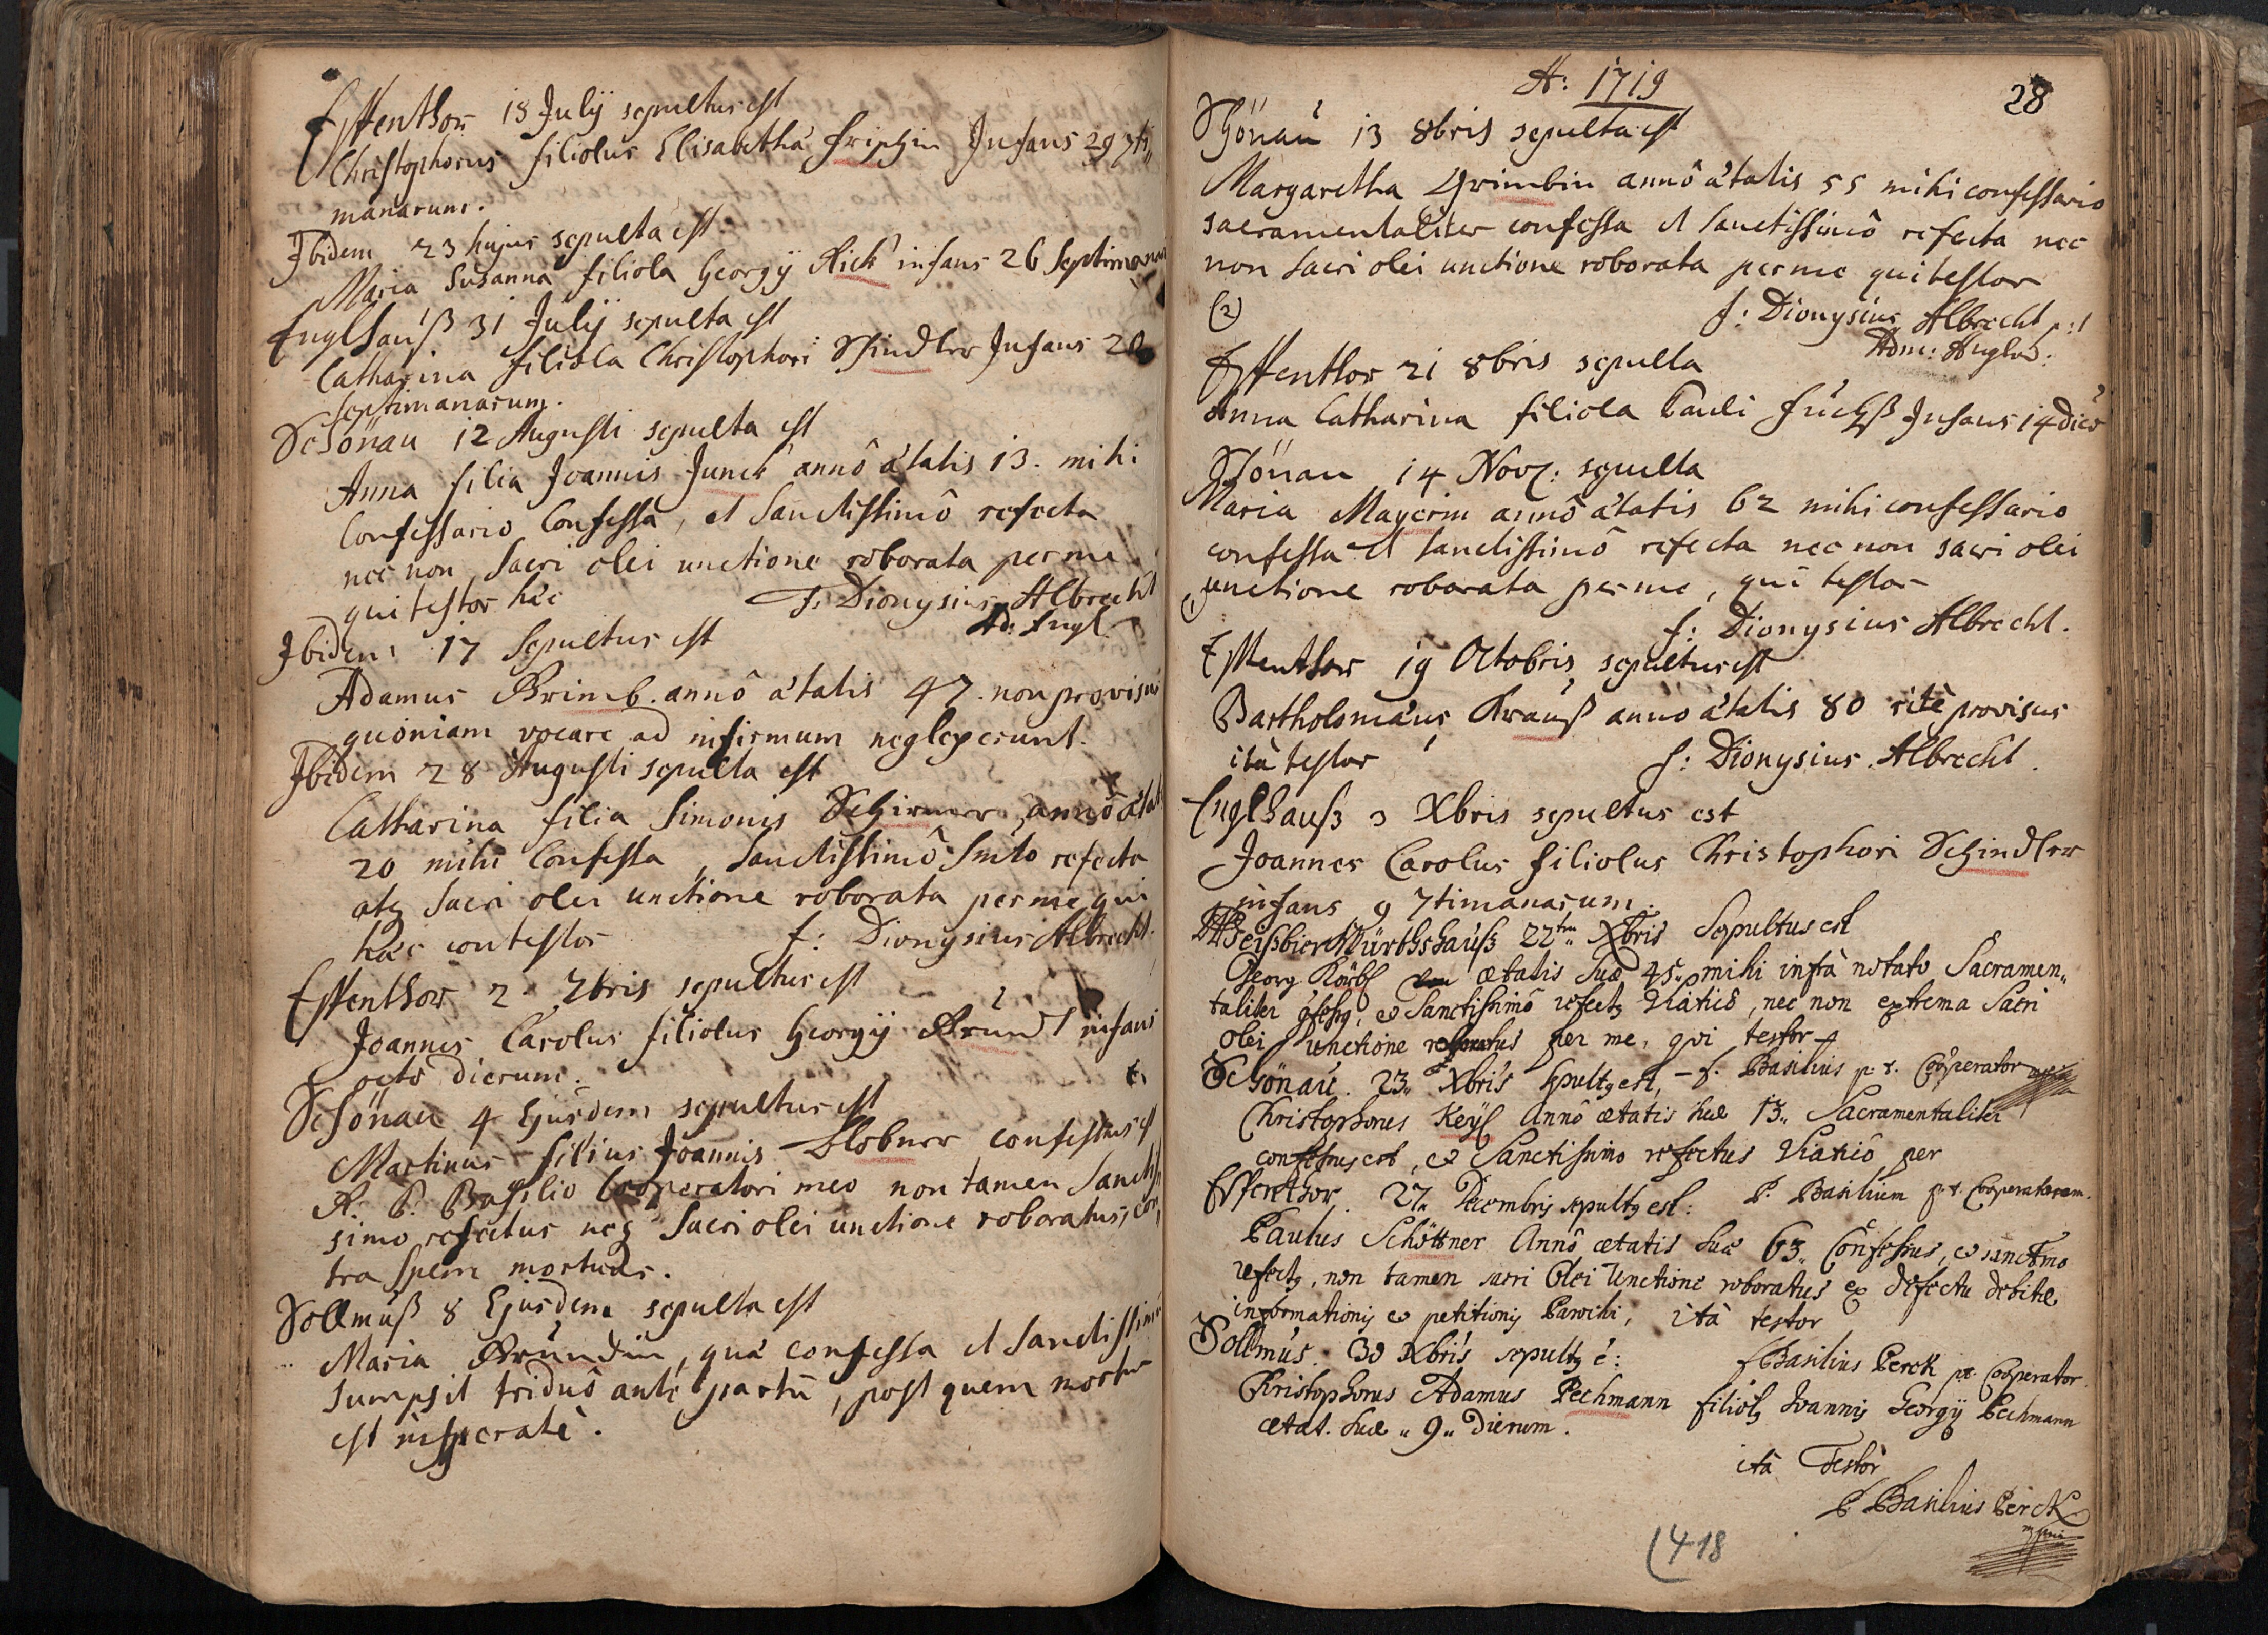 Essenthor 18 Julij sepultus est
Christophorus filiolus Elisabetha Infans 29 7ti„
manarum.
Ibidem 23 hujus sepulta est.
Maria Susanna filiola Georgij Rick infans 26 Septimana
Englhauß 31 Julij sepulta est
Catharina filiola Christophori Schindler Infans 28
septimanarum.
Schönau 12 Augusti sepulta est
Anna filia Joannis Junck annô ætatis 13. mihi
Confessario Confessa, et Sanctissimô refecta
nec non Sacri olei unctione roborata per me
qui testor hæc f: Dionysius Albrecht
Ad: Engl.
Ibidem 17 Sepultus est
Adamus Brimb. annô ætatis 47. non provisus
quoniam vocare ad infirmum neglexerunt.
Ibidem 28 Augusti sepulta est
Catharina filia Simonis Schirmer, annô ætat
20 mihi Confessa, Sanctissimô Smto refecta
atq Sacri olei unctione roborata per me qui
hæc contestor f: Dionysius Albrecht.
Essenthor 2 7bris sepultus est
Joannes Carolus filiolus Georgij Bründl infans
octo dierum.
Schönau 4 Ejusdem sepultus est
Martinus filius Joannis Llobner confessus est
R. P. Basilio Cooperatori meo non tamen Sanctis
simo refectus neq Sacri olei unctione roboratus, con
tra spem mortuus.
Sollmuß 8 Ejusdem sepulta est
Maria Bründin, quæ confessa et Sanctissimu
sumpsit triduô ante partū, post quem mortu
est insperatè.
A: 1719
28
Schönau 13 8bris sepulta est
Margaretha Grimbin annô ætatis 55 mihi confessario
sacramentaliter confessa et Sanctissimô refecta nec
non Sacri olei unctione roborata per me qui testor
(2) f: Dionysius Albrecht p:t
Adm: Englh:
Essenthor 21 8bris sepulta
Anna Catharina filiola Pauli Füchß Infans 14 dier
Schönau 14 Nov: sepulta
Maria Mayerin annô ætatis 62 mihi confessario
confessa et sanctissimô refecta nec non sacri olei
unctione roborata per me, qui testor
(1) f: Dionysius Albrecht.
Essenthor 19 Octobris sepultus est
Bartholomæus Krauß anno ætatis 80 ritè provisus
ità testor f: Dionysius Albrecht.
Englhauß 3 Xbris sepultus est
Joannes Carolus filiolus Christophori Schindler
infans 9 7timanarum.
Weisbier Würthshauß 22tm Xbris Sepultus est
Georg ætatis suæ 45. mihi infra notato Sacramen„
taliter , et Sanctissimô refectq Viaticô, nec non extrema Sacri
olei unctione per me, qvi testor
Schönau. 23. Xbris Sepultq est, – f. Basilius p. t. Cooperator
Christophorus Keyl Annô ætatis suæ 13„ Sacramentaliter
confessus est, et Sanctissimo refectus Viaticô per
Essenthor. 27„ Decembris sepultq est: P. Basilium p. t. Cooperatorem.
Paulus Schöttner Annô ætatis suæ 63„ Confessus, et sanctmo
refectq, non tamen sacri Olei Unctione roboratus ex defectu debitæ
informationis et petitionis Parochi, ità testor
Sollmus. 30 Xbris sepultq ē: f Basilius Perck pt Cooperator
Christophorus Adamus Pechmann filiolq Joannis Georgij Pechmann
ætat. suæ „ 9„ Dierum.
ità Testor
P. Basilius Perck
mpria
418